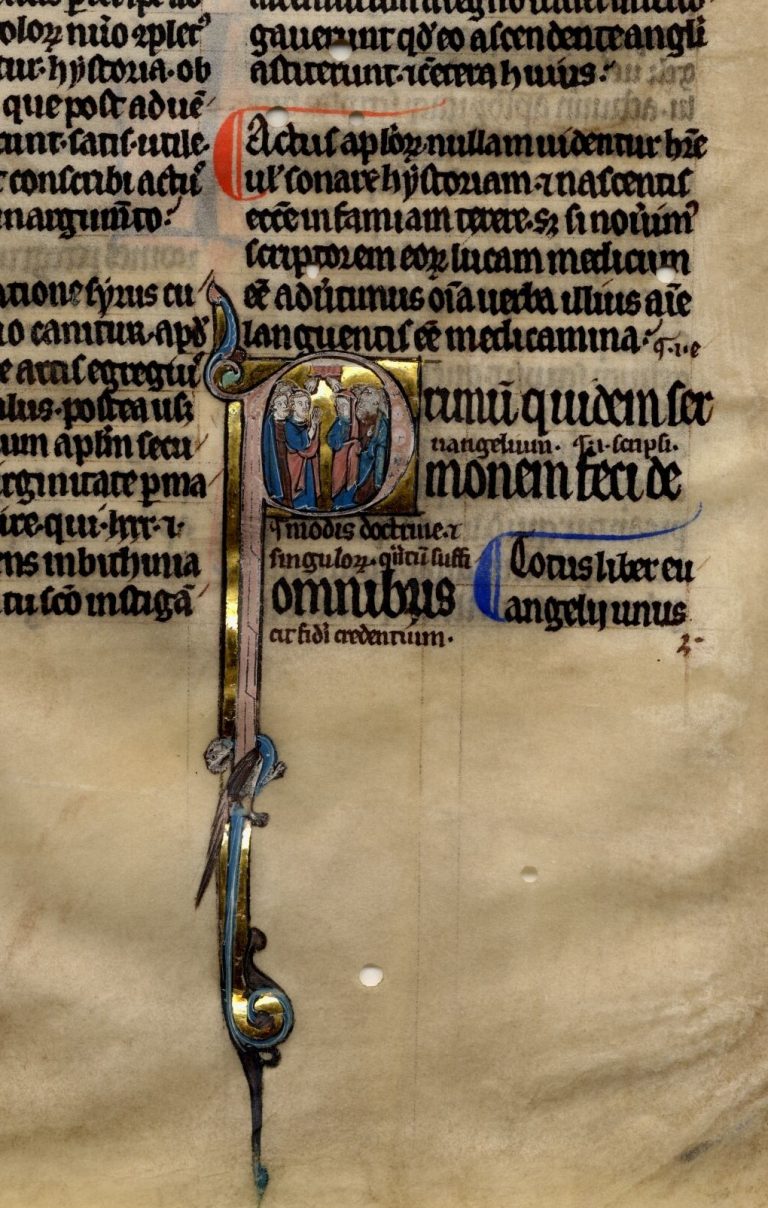 oloꝝ nũo ꝯpletꝰ
tur. hystoria. ob
que post aduē
cunt. satis. utile.
conscribi actus
n argum̄to.
atione syrus cu
o canitur. apd̄
e artis egregiu
ulus. postea usꝫ
um apl̄m secu
rginitate ꝑma
ire. qui. lxx. ⁊
ens in bithinia
itu sc̄o instigā
gauerunt qđ eo ascendente angli
astiterunt. ⁊ cetera huius.
Actus apl̄oꝝ. nullam uidentur hr̄e
ul' sonare hystoriam. ⁊ nascentis
ecc̄e infamiam texere. sꝫ si nouimꝰ
scriptorem eoꝝ lucam medicum
eē aduertimus oīa uerba illius aīe
languentis eē medicamina. .i. e
Primū quidem ser
uangelium. scripsi.
monem feci de
modis doctrine. ⁊
singuloꝝ. suffi
omnibus
cit fidi credentium.
Totus liber eu
angelij unus